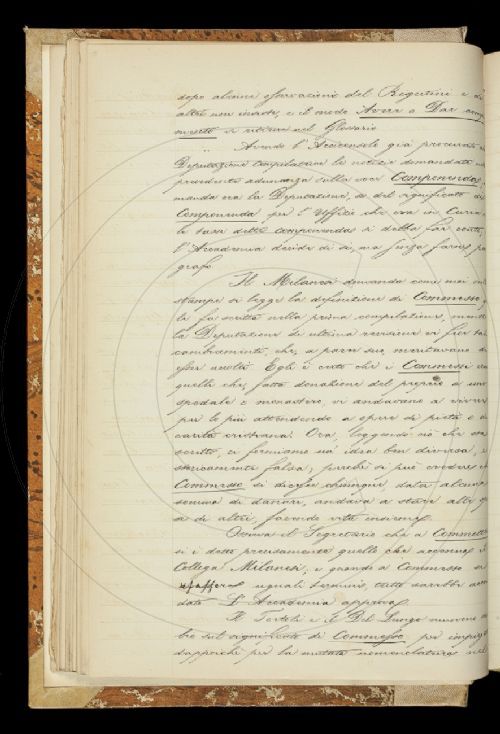 dopo alcune osservazioni del Rigutini e di
altri non insiste, e il modo Avere o Dar comp
mesto si ritiene nel Glossario
Avendo l'Arciconsolo già procurato
Deputazione compilatrice le notizie domandate
precedente adunanza sulla voce Componenda,
manda ora la Deputazione, se del significato di
Componenda per l'Uffizio che era in Curia
la tassa delle componende si debba far conto,
l'Accademia decide di sì, ma senza farne pa
grafo
Il Milanesi domanda come mai
stampe si legge la definizione di Commesso
la fu scritta nella prima compilazione, mentre
la Deputazione di ultima revisione vi fece
cambiamenti, che, a parer suo, meritavano d'
esser accolti. Egli è certo che i Commessi
quelli che, fatta donazione del proprio a uno
spedale o monastero, vi andavano a vivere
per lo più attendendo a opere di pietà e di
carità cristiana. Ora, leggendo ciò che
scritto, ci formiamo un' idea ben diversa, e
storicamente falsa; perchè si può credere
Commesso si dicesse chiunque, data alcuna
somma di danari, andava a stare alle
sa di altri, facendo vita insieme
Osserva il Segretario che a Commettere
si è detto precisamente quello che accenna il
Collega Milanesi, e quando a Commesso si
uguali termini, tutto sarebbe acco
dato L'Accademia approva
Il Tortoli e il Del Lungo muovono
bio sul significato di Commesso per impieg
dappoichè per la mutata nomenclatura nel